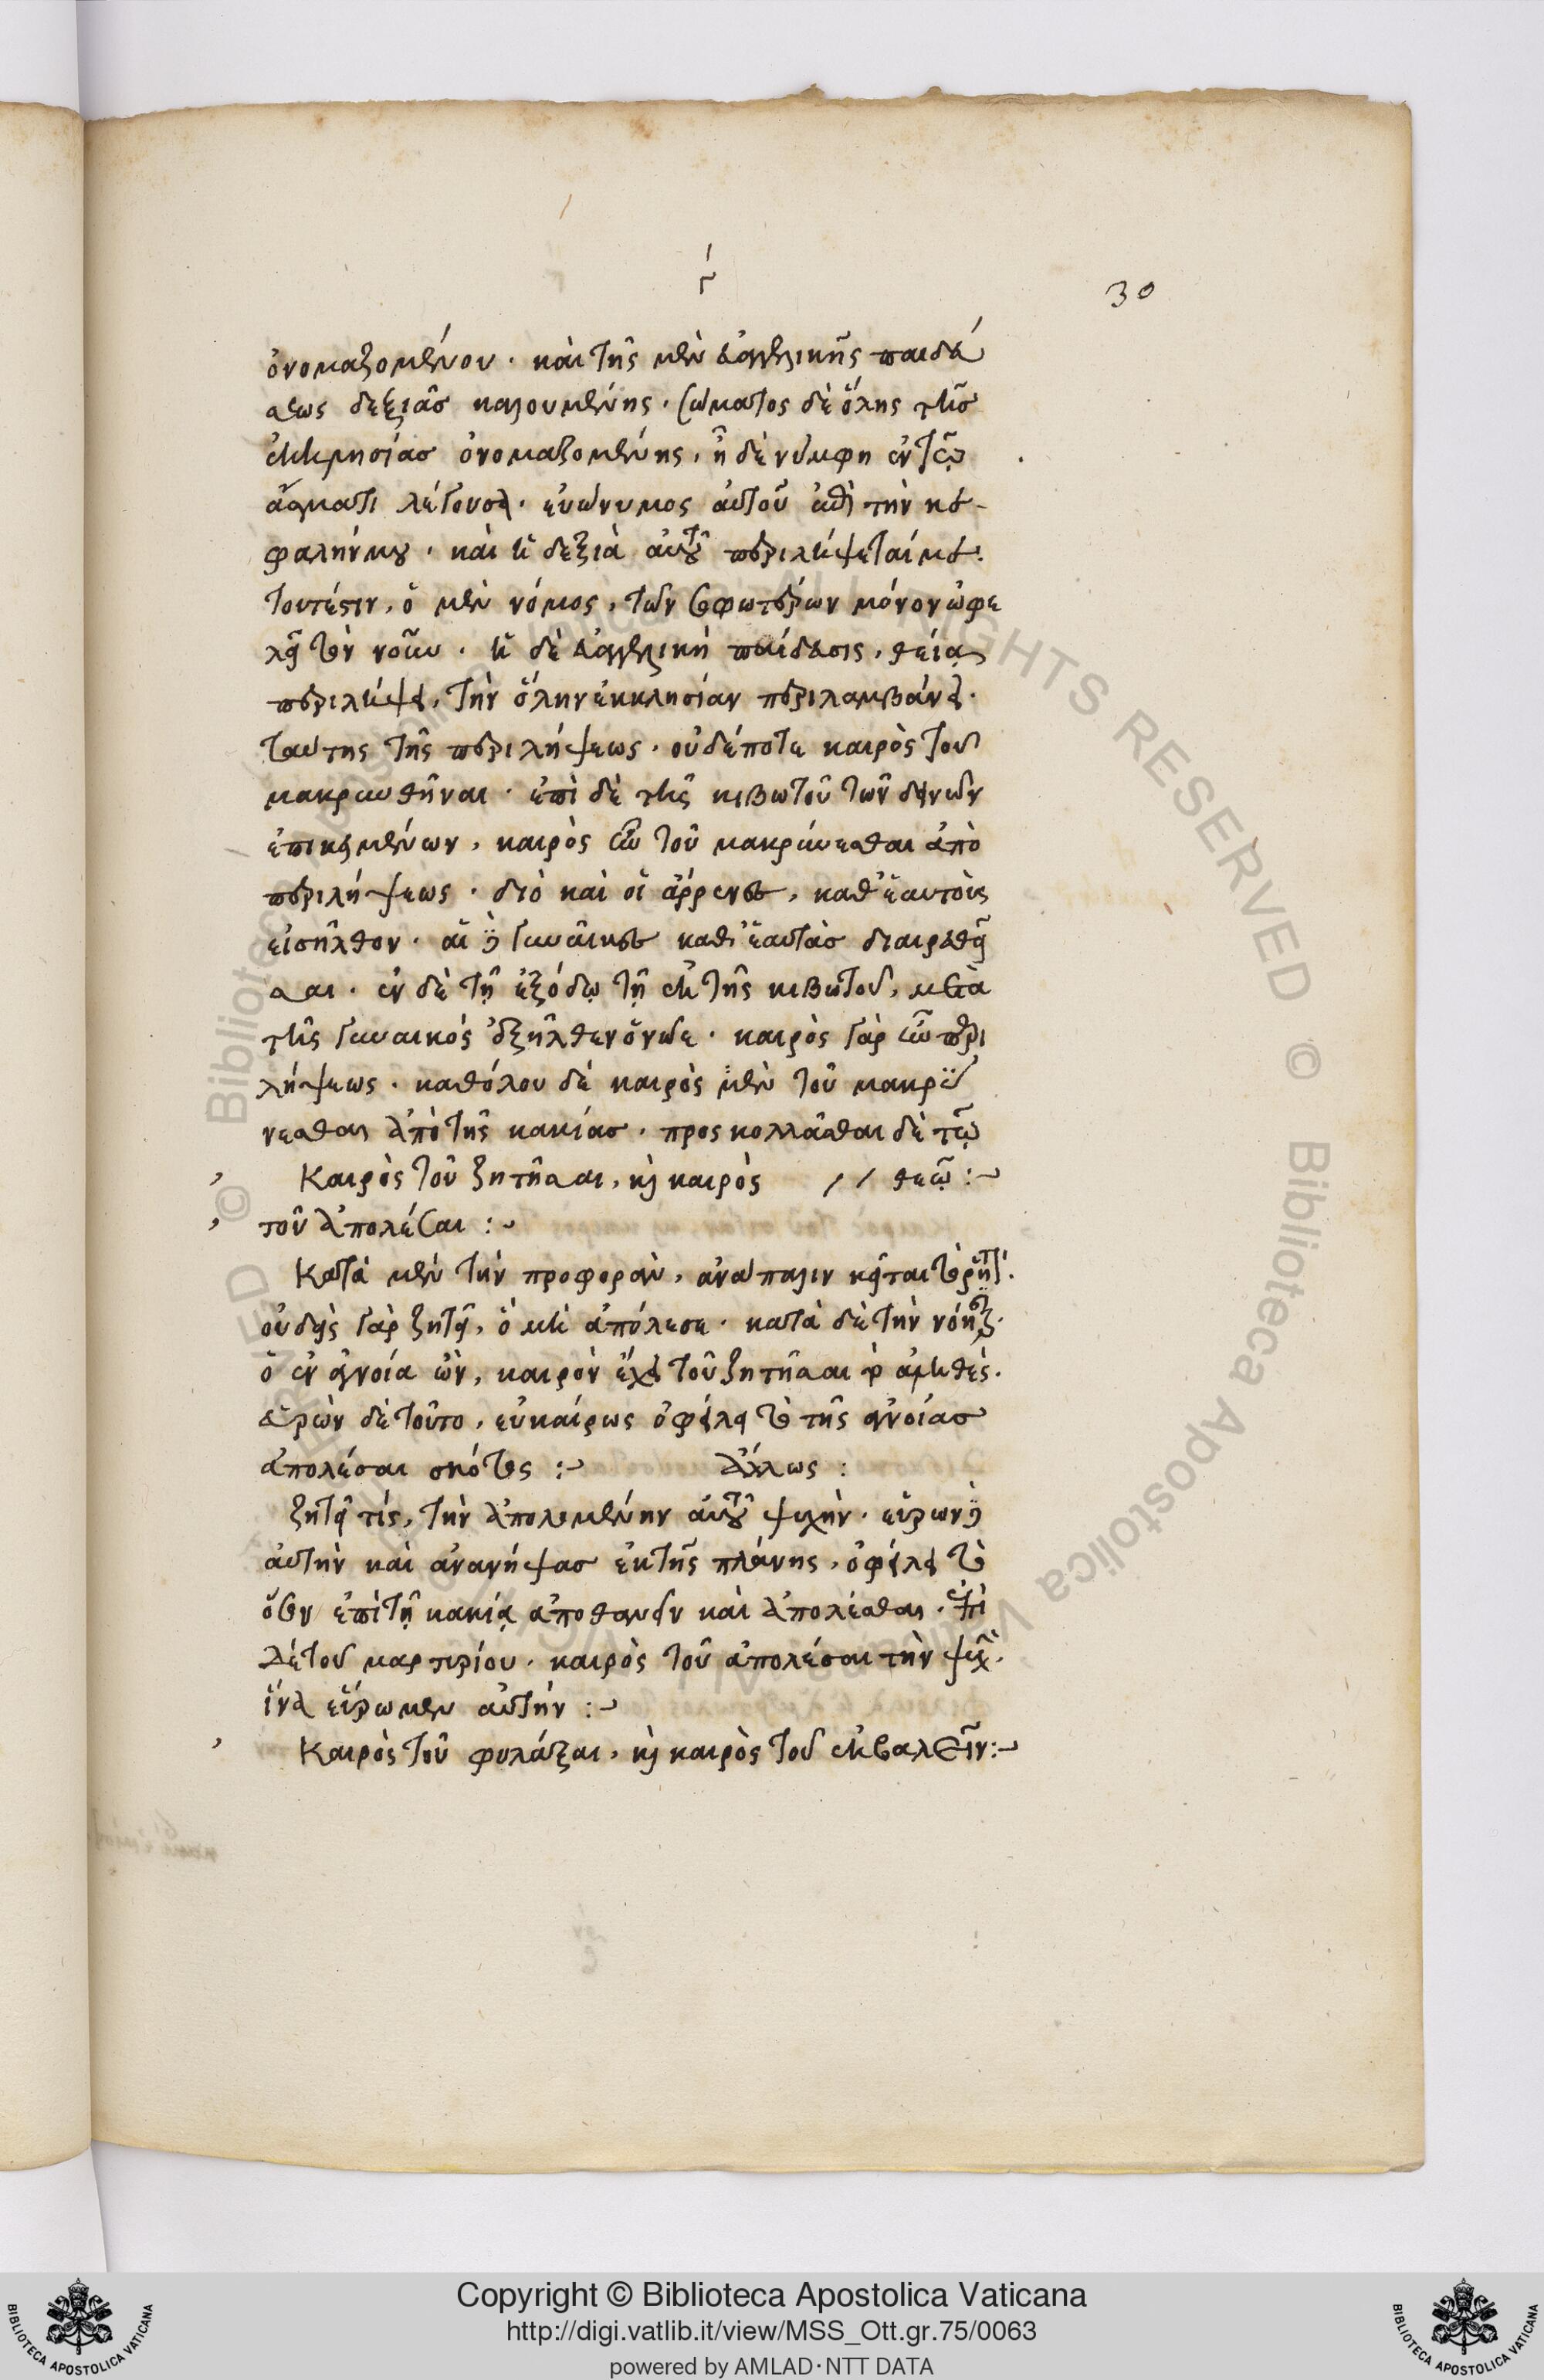 30
ὀνομαζομένου· καὶ τῆς μὲν εὐαγγελικῆς παιδεύ
σεως δεξιᾶσ καλουμένης· σώματος δὲ ὅλης τῆσ
ἐκκλησίασ ὀνομαζομένης, ἡ δὲ νύμφη ἐν τῷ
ᾄσματι λέγουσα· εὐώνυμος αὐτοῦ ἐπὶ τὴν κε-
φαλήν μου· καὶ ἡ δεξιὰ αὐτοῦ περιλήψεταί με·
τουτέστιν, ὁ μὲν νόμος, τῶν
λεῖ τὸν νοῦν· ἡ δὲ εὐαγγελικὴ παίδευσις, θεία
περιλήψει, τὴν ὅλην ἐκκλησίαν περιλαμβάνει·
ταύτης τῆς περιλήψεως· οὐδέποτε καιρὸς τοῦ
μακρυνθῆναι· ἐπὶ δὲ τῆς κιβωτοῦ τῶν δεινῶν
ἐπικειμένων, καιρὸς ἦν τοῦ μακρύνεσθαι ἀπὸ
περιλήψεως· διὸ καὶ οἱ ἄρρενες, καθ' ἑαυτοὺς
εἰσῆλθον· αἱ δὲ γυναῖκες καθ' ἑαυτὰσ διαιρεθεῖ
σαι· ἐν δὲ τῇ ἐξόδῳ τῇ ἐκ τῆς κιβωτοῦ, μετὰ
τῆς γυναικὸς ἐξῆλθεν ὁ νῶε· καιρὸς γὰρ ἦν περι
λήψεως· καθόλου δὲ καιρὸς μὲν τοῦ μακρύ
νεσθαι ἀπὸ τῆς κακίασ· προσκολλᾶσθαι δὲ τῷ
Καιρὸς τοῦ ζητῆσαι, κὶ καιρὸς // θεῷ :~
τοῦ ἀπολέσαι :~
Κατὰ μὲν τὴν προφορὰν, ἀνάπαλιν κεῖται τὸ ῥητ·
οὐδεὶς γὰρ ζητεῖ, ὃ μὴ ἀπόλεσε· κατὰ δὲ τὴν νόησ·
ὁ ἐν ἀγνοία ὢν, καιρὸν ἔχει τοῦ ζητῆσαι τὸ ἀληθές·
εὑρὼν δὲ τοῦτο, εὐκαίρως ὀφείλει τὸ τῆς ἀγνοίασ
ἀπολέσαι σκότος :~ ἄλλως :
ζητεῖ τίς, τὴν ἀπολομένην αὐτοῦ ψυχὴν· εὑρὼν δὲ
αὐτὴν καὶ ἀνανήψασ ἐκ τῆς πλάνης, ὀφείλει τὸ
ὅθεν ἐπὶ τῇ κακίᾳ ἀποθανεῖν καὶ ἀπολέσθαι· ἐπὶ
δὲ τοῦ μαρτυρίου· καιρὸς τοῦ ἀπολέσαι τὴν ψυχ·
ἵνα εὕρωμεν αὐτήν :~
Καιρὸς τοῦ φυλάξαι, κὶ καιρὸς τοῦ ἐκβαλεῖν :~
BIBLIOTECA APOSTOLICA VATICANA
Copyright © Biblioteca Apostolica Vaticana
http://digi.vatlib.it/view/MSS_Ott.gr.75/0063
powered by AMLAD·NTT DATA
BIBLIOTECA APOSTOLICA VATICANA